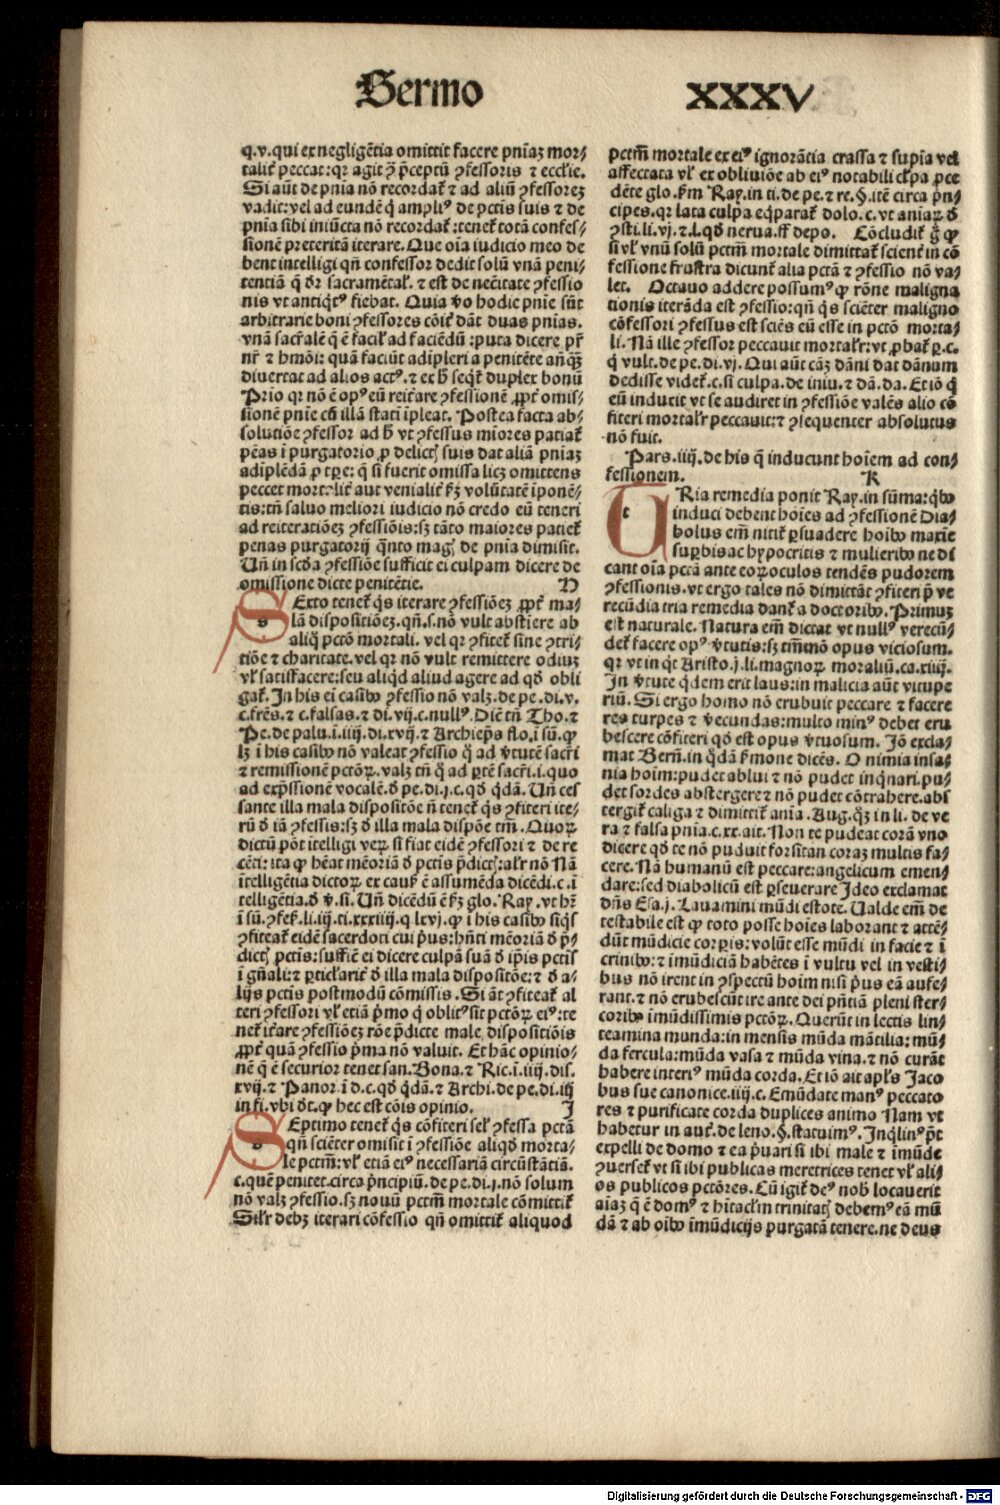 Sermo XXXV
q.v.qui ex negligẽtia omittit facere pnĩaꝫ mor⸗
talit᷑ peccat:qꝛ agit ꝯ̃ p̃ceptũ ꝯfessoris ⁊ eccl̃ie.
Si aũt de pnĩa nõ recordat᷑ ⁊ ad aliũ ꝯfessoreꝫ
vadit:vel ad eundẽ q̃ ampliꝰ de pctĩs suis ⁊ de
pnĩa sibi iniũcta nõ recordat᷑:tenet᷑ totã confes⸗
sionẽ preteritã iterare. Que oĩa iudicio meo de
bent intelligi qñ confessor dedit solũ vnã peni⸗
tentiã q̃ dr̃ sacramẽtal᷑. ⁊ est de necĩtate ꝯfessio
nis vt antiqͥtꝰ fiebat. Quia ṽo hodie pnĩe sũt
arbitrarie boni ꝯfessores cõit᷑ dãt duas pnĩas.
vnã sacr̃alẽ q̃ ẽ facil᷑ ad faciẽdũ:puta dicere pr̃
nr̃ ⁊ hmõi: quã faciũt adipleri a penitẽte añq̃ꝫ
diuertat ad alios actꝰ.⁊ ex ħ seqͥt᷑ duplex bonũ
Prĩo qꝛ nõ ẽ opꝰ eũ reit᷑are ꝯfessionẽ ꝓpt᷑ omis⸗
sionẽ pnĩe cũ illã statĩ ĩpleat. Postea facta ab⸗
solutiõe ꝯfessor ad ħ vt ꝯfessus mĩores patiat᷑
pẽas ĩ purgatorio ꝓ delictꝭ suis dat aliã pnĩaꝫ
adiplẽdã ꝓ tꝑe: q̃ si fuerit omissa licꝫ omittens
peccet mortalit᷑ aut venialit᷑ ẜꝫ volũtatẽ ĩponẽ⸗
tis:tñ saluo meliori iudicio nõ credo eũ teneri
ad reiteratiõeꝫ ꝯfessiõis:sꝫ tãto maiores patiet᷑
penas purgatorij qͣnto magꝭ de pnĩa dimisit.
Uñ in scd̃a ꝯfessiõe sufficit ei culpam dicere de
omissione dicte penitẽtie. H
SExto tenet᷑ qͥs iterare ꝯfessiõeꝫ ꝓpt᷑ ma⸗
lã dispositiõeꝫ.qñ.s.nõ vult abstiere ab
aliq̃ pctõ mortali. vel qꝛ ꝯfitet᷑ sine ꝯtri⸗
tiõe ⁊ charitate.vel qꝛ nõ vult remittere odiuꝫ
vl᷑ satisfacere:seu aliqͥd aliud agere ad qd̃ obli
gat᷑. In his ei casibꝰ ꝯfessio nõ valꝫ.de pe.di.v.
c.frẽs.⁊ c.falsas.⁊ di.vij.c.nullꝰ. Diẽt tñ Tho.⁊
Pe.de palu.ĩ.iiij.di.xvij.⁊ Archiep̃s flo.ĩ sũ.ꝙ
lꝫ ĩ his casibꝰ nõ valeat ꝯfessio q̃ ad v̓tutẽ sacr̃i
⁊ remissionẽ pctõꝝ.valꝫ tñ q̃ ad ꝑtẽ sacr̃i.i.quo
ad exp̃ssionẽ vocalẽ.ð pe.di.j.c.qd̃ qͥdã. Uñ ces
sante illa mala dispositõe ñ tenet᷑ qͥs ꝯfiteri ite⸗
rũ ð iã ꝯfessis:sꝫ ð illa mala dispõe tm̃. Quoꝝ
dictũ põt ĩtelligi veꝝ si fiat eidẽ ꝯfessori ⁊ de re
cẽti:ita ꝙ hẽat mẽoriã ð pctĩs p̃dictꝭ:al᷑r nõ Nã
ĩtelligẽtia dictoꝝ ex causꝭ ẽ assumẽda dicẽdi.c.ĩ
telligẽtia.ð v̓.si. Uñ dicẽdũ ẽ ẜꝫ glo. Ray.vt hẽt
ĩ sũ.ꝯfeẜ.li.iij.ti.xxxiiij.q lxvj.ꝙ ĩ his casibꝰ siqͥs
ꝯfiteat᷑ eidẽ sacerdoti cui p̓us:hñti mẽoriã ð p̃⸗
dictꝭ pctĩs:sufficẽ ei dicere culpã suã ð ip̃is pctĩs
ĩ gñali:⁊ ꝑticl᷑arit᷑ ð illa mala dispositõe:⁊ ð a⸗
lijs pctĩs postmodũ cõmissis. Si aũt ꝯfiteat᷑ al
teri ꝯfessori vl᷑ etiã p̓mo q̃ oblitꝰ sit pctõꝝ eiꝰ:te
net᷑ it᷑are ꝯfessiõeꝫ rõe p̃dicte male dispositiõis
ꝓpt᷑ quã ꝯfessio p̓ma nõ valuit. Et hãc opinio⸗
nẽ q̃ ẽ securior tenet san. Bona.⁊ Ric.ĩ.iiij.dis.
xvij.⁊ Panor.ĩ d.c.qd̃ qͥdã.⁊ Archi.de pe.di.iij
in fi.vbi dĩt.ꝙ hec est cõis opinio. J
SEptimo tenet᷑ qͥs cõfiteri sel᷑ ꝯfessa pctã
qñ sciẽter omisit ĩ ꝯfessiõe aliqd̃ morta⸗
le pctm̃:vl᷑ etiã eiꝰ necessariã circũstãtiã.
c.quẽ penitet.circa p̓ncipiũ.de pe.di.j.nõ solum
nõ valꝫ ꝯfessio.sꝫ nouũ pctm̃ mortale cõmittit᷑
Sil᷑r debꝫ iterari cõfessio qñ omittit᷑ aliquod
pctm̃ mortale ex eiꝰ ignorãtia crassa ⁊ supĩa vel
affectata vl᷑ ex obliuiõe ab eiꝰ notabili cl᷑pa ꝓce
dẽte glo.ẜm Ray.in ti.de pe.⁊ re.§.itẽ circa p̓n⸗
cipes.qꝛ lata culpa eqͥparat᷑ dolo.c.vt aniaꝝ ð
ꝯsti.li.vj.⁊.l.qd̃ nerua.ff depo. Cõcludit᷑ g̃ ꝙ
si vl᷑ vnũ solũ pctm̃ mortale dimittat᷑ scient᷑ in cõ
fessione frustra dicunt᷑ alia pctã ⁊ ꝯfessio nõ va⸗
let. Octauo addere possumꝰ ꝙ rõne maligna
tionis iterãda est ꝯfessio:qñ qͥs sciẽter maligno
cõfessori ꝯfessus est sciẽs eũ esse in pctõ morta⸗
li. Nã ille ꝯfessor peccauit mortal᷑r:vt ꝓbat᷑ ꝑ.c.
q̃ vult.de pe.di.vj. Qui aũt cãꝫ dãni dat dãnum
dedisse videt᷑.c.si culpa.de iniu.⁊ dã.da. Et iõ q̃
eũ inducit vt se audiret in ꝯfessiõe valẽs alio cõ
fiteri mortal᷑r peccauit:⁊ ꝯsequenter absolutus
nõ fuit.
Pars.iiij.de his q̃ inducunt hoĩem ad con⸗
fessionem. K
TRia remedia ponit Ray.in sũma:qͥbꝰ
induci debent hoĩes ad ꝯfessionẽ Dia⸗
bolus em̃ nitit᷑ ꝑsuadere hoĩbꝰ maxĩe
suꝑbis ac hypocritis ⁊ mulieribꝰ ne di
cant oĩa pctã ante eoꝝ oculos tendẽs pudorem
ꝯfessionis.vt ergo tales nõ dimittãt ꝯfiteri p̃ ve
recũdia tria remedia dant᷑ a doctoribꝰ. Primuꝫ
est naturale. Natura em̃ dictat vt nullꝰ verecũ⸗
det᷑ facere opꝰ v̓tutis:sꝫ tm̃mõ opus viciosum.
qꝛ vt inqͥt Aristo.j.li.magnoꝝ moraliũ.ca.xiiij.
In v̓tute qͥdem erit laus:in malicia aũt vitupe
riũ. Si ergo homo nõ erubuit peccare ⁊ facere
res turpes ⁊ v̓ecundas:multo minꝰ debet eru
bescere cõfiteri qd̃ est opus v̓tuosum. Iõ excla⸗
mat Bern̄.in qͥdã ẜmone dicẽs. O nimia insa⸗
nia hoĩm:pudet ablui ⁊ nõ pudet inqͥnari.pu⸗
det sordes abstergere ⁊ nõ pudet cõtrahere.abs
tergit᷑ caliga ⁊ dimittit᷑ anĩa. Aug.q̃ꝫ in li. de ve
ra ⁊ falsa pnĩa.c.xx.ait. Non te pudeat corã vno
dicere qd̃ te nõ puduit forsitan coraꝫ multis fa⸗
cere. Nã humanũ est peccare:angelicum emen⸗
dare:sed diabolicũ est ꝑseuerare Ideo exclamat
dñs Esa.j. Lauamini mũdi estote. Ualde em̃ de
testabile est ꝙ toto posse hoĩes laborant ⁊ attẽ⸗
dũt mũdicie corꝑis:volũt esse mũdi in facie ⁊ ĩ
crinibꝰ:⁊ ĩmũdiciã habẽtes ĩ vultu vel in vesti⸗
bus nõ irent in ꝯspectũ hoĩm nisi p̓us eã aufe⸗
rant.⁊ nõ erubescũt ire ante dei pñtiã pleni ster⸗
coribꝰ ĩmũdissimis pctõꝝ. Querũt in lectis lin⸗
teamina munda:in mensis mũda mãtilia: mũ⸗
da fercula:mũda vasa ⁊ mũda vina.⁊ nõ curãt
habere interiꝰ mũda corda. Et iõ ait apl᷑s Jaco
bus sue canonice.iiij.c. Emũdate manꝰ peccato
res ⁊ purificate corda duplices animo Nam vt
habetur in aut᷑.de leno.§.statuimꝰ. Inqͥlinꝰ p̃t
expelli de domo ⁊ ea p̓uari si ibi male ⁊ ĩmũde
ꝯuerset᷑ vt si ibi publicas meretrices tenet vl᷑ ali⸗
os publicos pctõres. Cũ igit᷑ deꝰ nob̃ locauerit
aĩaꝫ q̃ ẽ domꝰ ⁊ hĩtacl᷑m trinitatꝭ debemꝰ eã mũ
dã ⁊ ab oĩbꝰ ĩmũdicijs purgatã tenere.ne deus
Digitalisierung gefördert durch die Deutsche Forschungsgemeinschaft - DFG